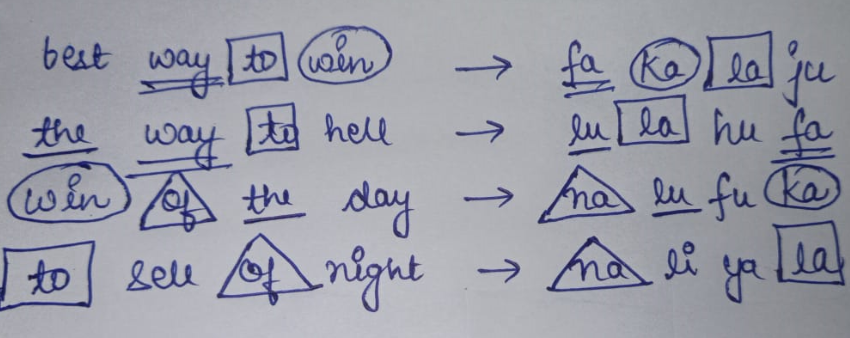 best way to win → fa ka la ju
the way to hell → lu la hu fa
win of the day → na lu fu ka
to sell of night → na li ya la